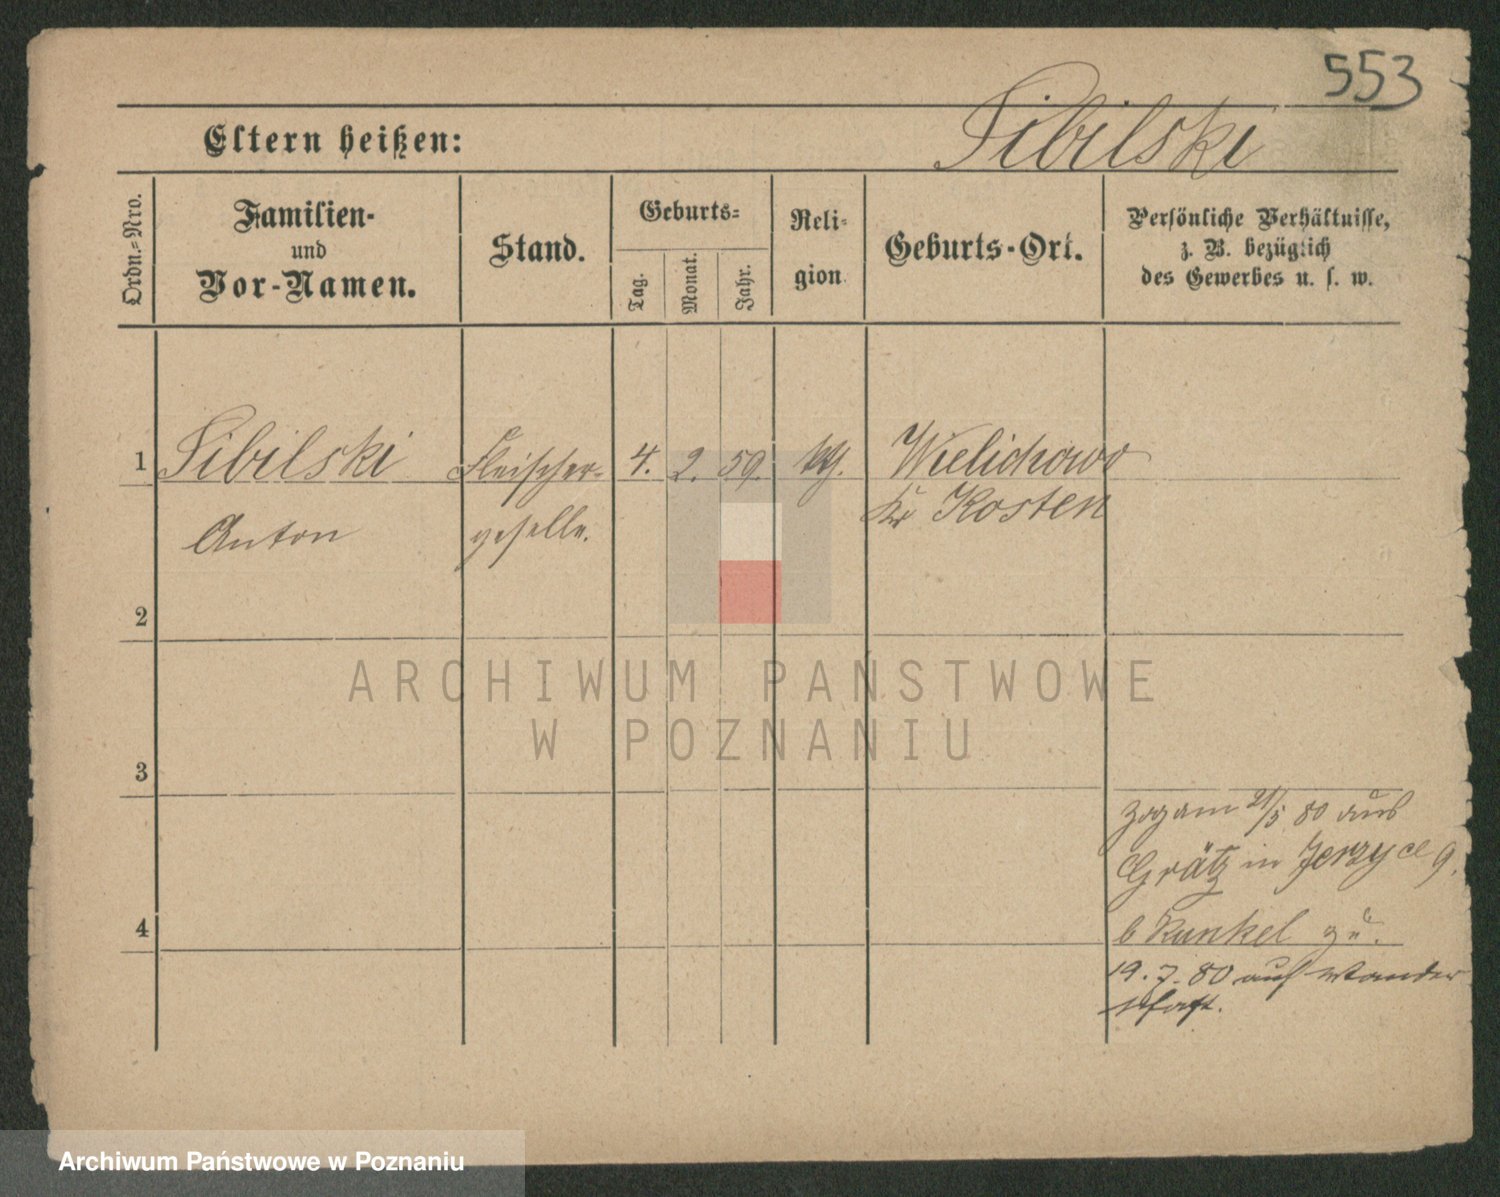 553
Eltern heißen:
Sibilski
Ordn.-Nro.
Familien-
und
Vor-Namen.
Stand.
Geburts-
Tag.
Monat.
Jahr.
Reli-
gion
Geburts-Ort.
Persönliche Verhältnisse,
z. B. bezüglich
des Gewerbes u. s. w.
1
Sibilski
Anton
Fleischer-
geselle.
4.
2.
59.
Wielichowo
Kr Kosten
2
3
4
zog am 21/5 80 aus
Grätz in Jerzyce 9.
b Kunkel zu.
19.7.80 auf Wander
schaft.
ARCHIWUM PAŃSTWOWE
W POZNANIU
Archiwum Państwowe w Poznaniu